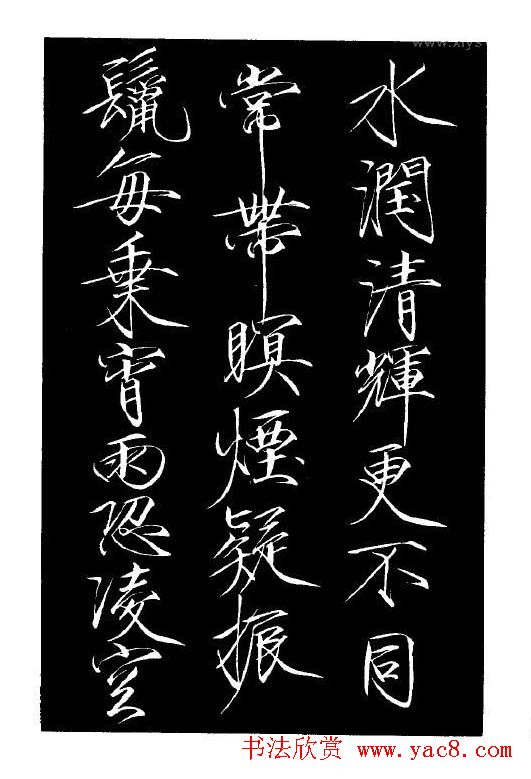 www.xlys
水潤清輝更不同
常帶暝煙疑振
鬣每乘宵雨恐凌空
书法欣赏 www.yac8.com